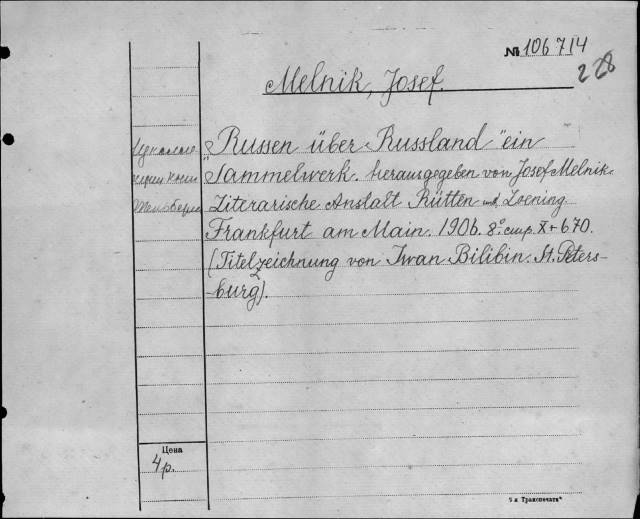 № 106714
228
Melnik, Josef.
„Russen über Russland" ein
Sammelwerk. herausgegeben von Josef Melnik.
Literarische Anstalt Rütten und Loening.
Frankfurt am Main. 1906. 8° стр. X + 670.
(Titelzeichnung von Iwan Bilibin. St. Peters-
-burg).
Цена
4 р.
5 я Транспечать"